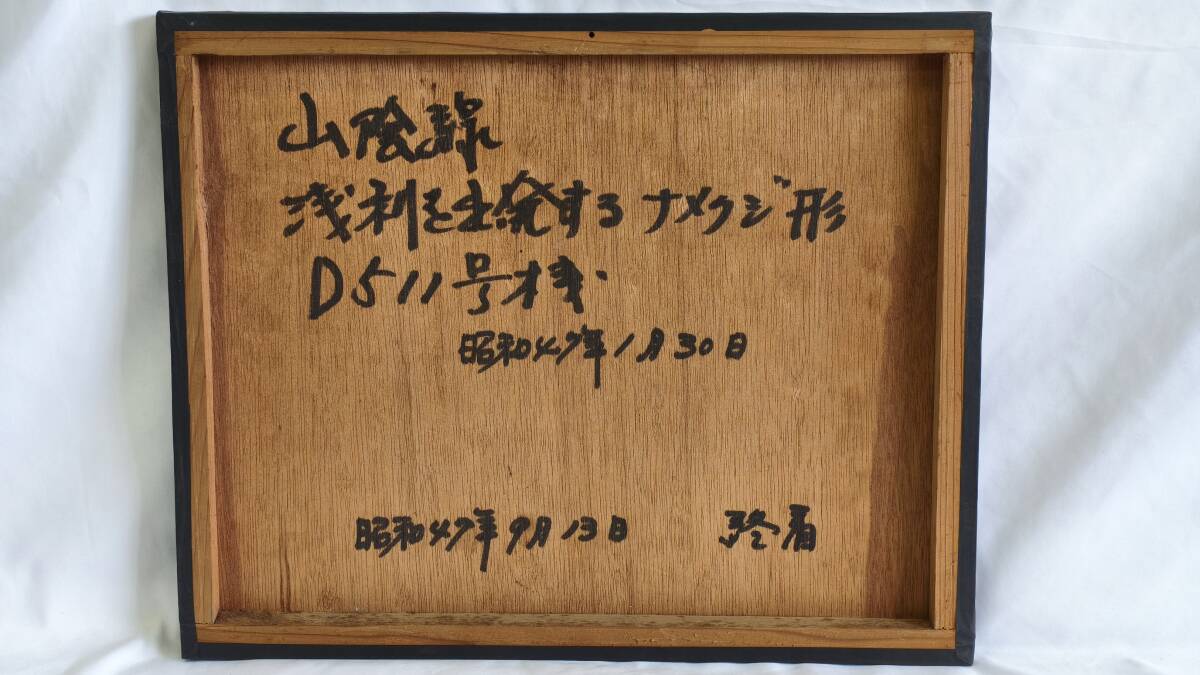 山陰線
浅利を出発するナメクジ形
D511号機
昭和47年1月30日
昭和47年9月13日